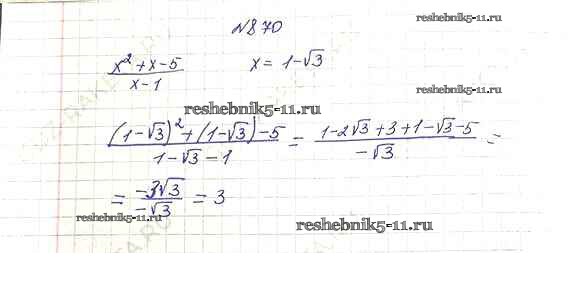 №870
reshebnik5-11.ru
(x² + x - 5)/(x - 1)   x = 1 - √3
reshebnik5-11.ru
reshebnik5-11.ru
((1-√3)² + (1-√3) - 5)/(1 - √3 - 1) = (1 - 2√3 + 3 + 1 - √3 - 5)/(-√3) =
= (-3√3)/(-√3) = 3
reshebnik5-11.ru
reshebnik5-11.ru